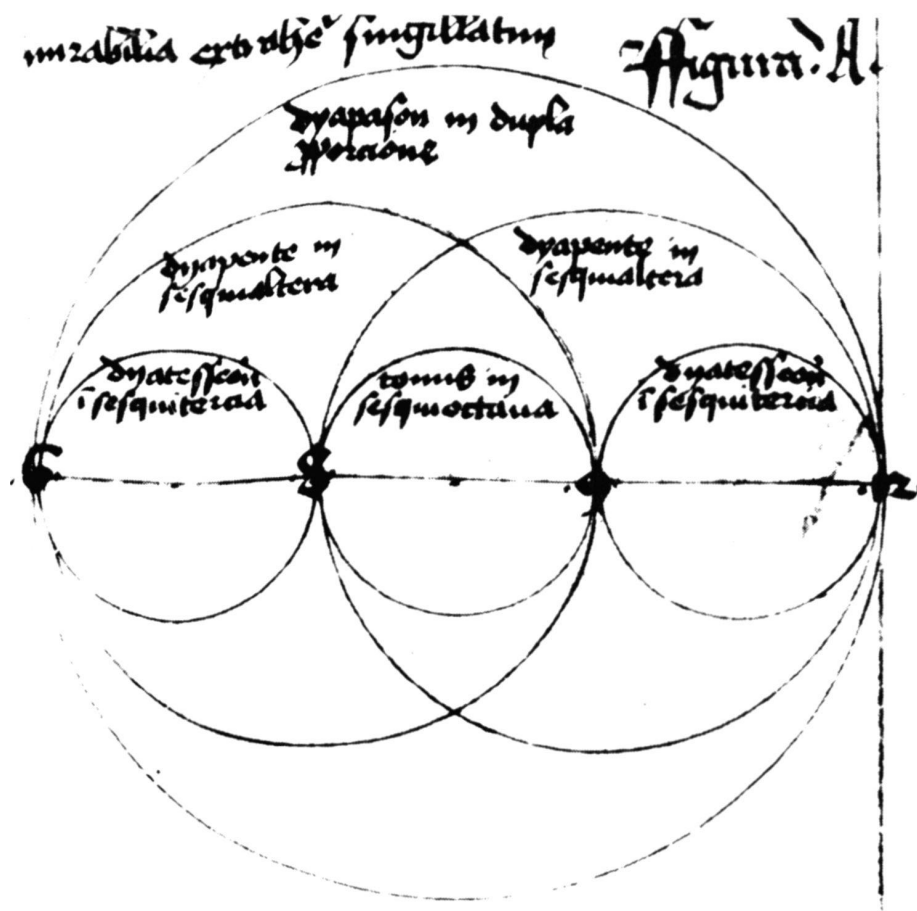 mirabilia extrahe͂ singillatim
Figura. A.
dyapason in dupla
pporcione
dyapente in
sesqualtera
dyapente in
sesqualtera
dyatesseroñ
ī sesquitercia
tonus in
sesquioctaua
dyatesseroñ
ī sesquitercia
6 8 9 12